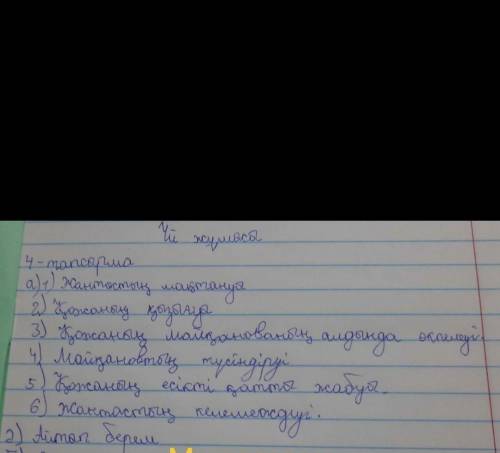 Үй жұмысы
4-тапсырма
а) 1) Жантастың мақтануы
2) Қожаның қызығуы
3) Қожаның майқановтың алдында өкпелеуі
4) Майқановтың түсіндіруі
5) Қожаның есікті қатты жабуы.
6) Жантастың келемеждеуі.
2) Айтып берем